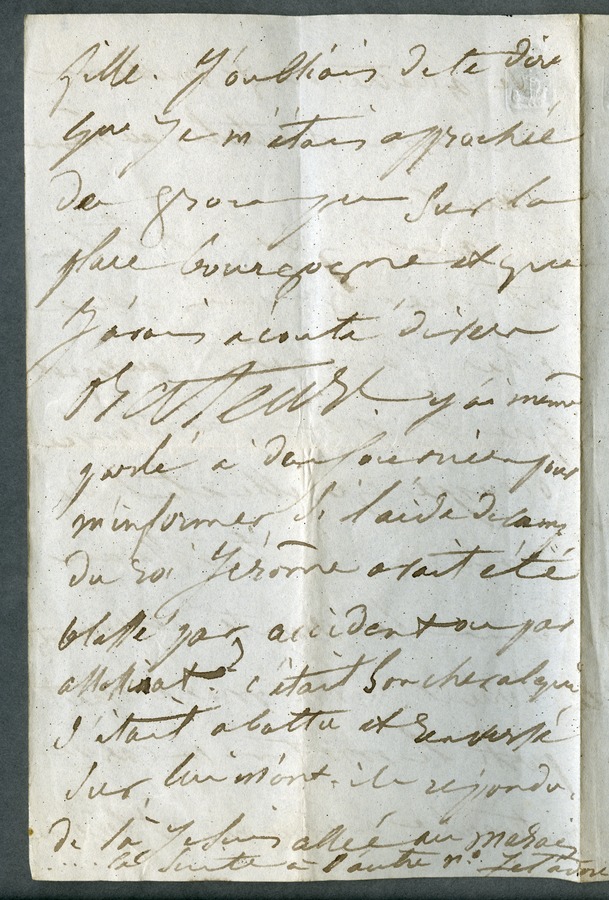 fille. J'oubliais de te dire
que je m'étais approchée
du sur la
place bourgogne et que
j'avais écouté divers
orateurs j'ai même
parlé à deux pour
m'informer si l'aide de camp
du roi Jérôme avait été
blessé par accident ou par
assassinat. c'était son cheval qui
s'était abattu et renversé
sur lui m'ont-ils répondu.
de là je suis allée au marais
la suite à l'autre n° Je t'adore